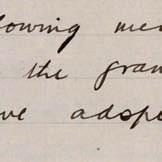 lowing me
the gran
ve adop